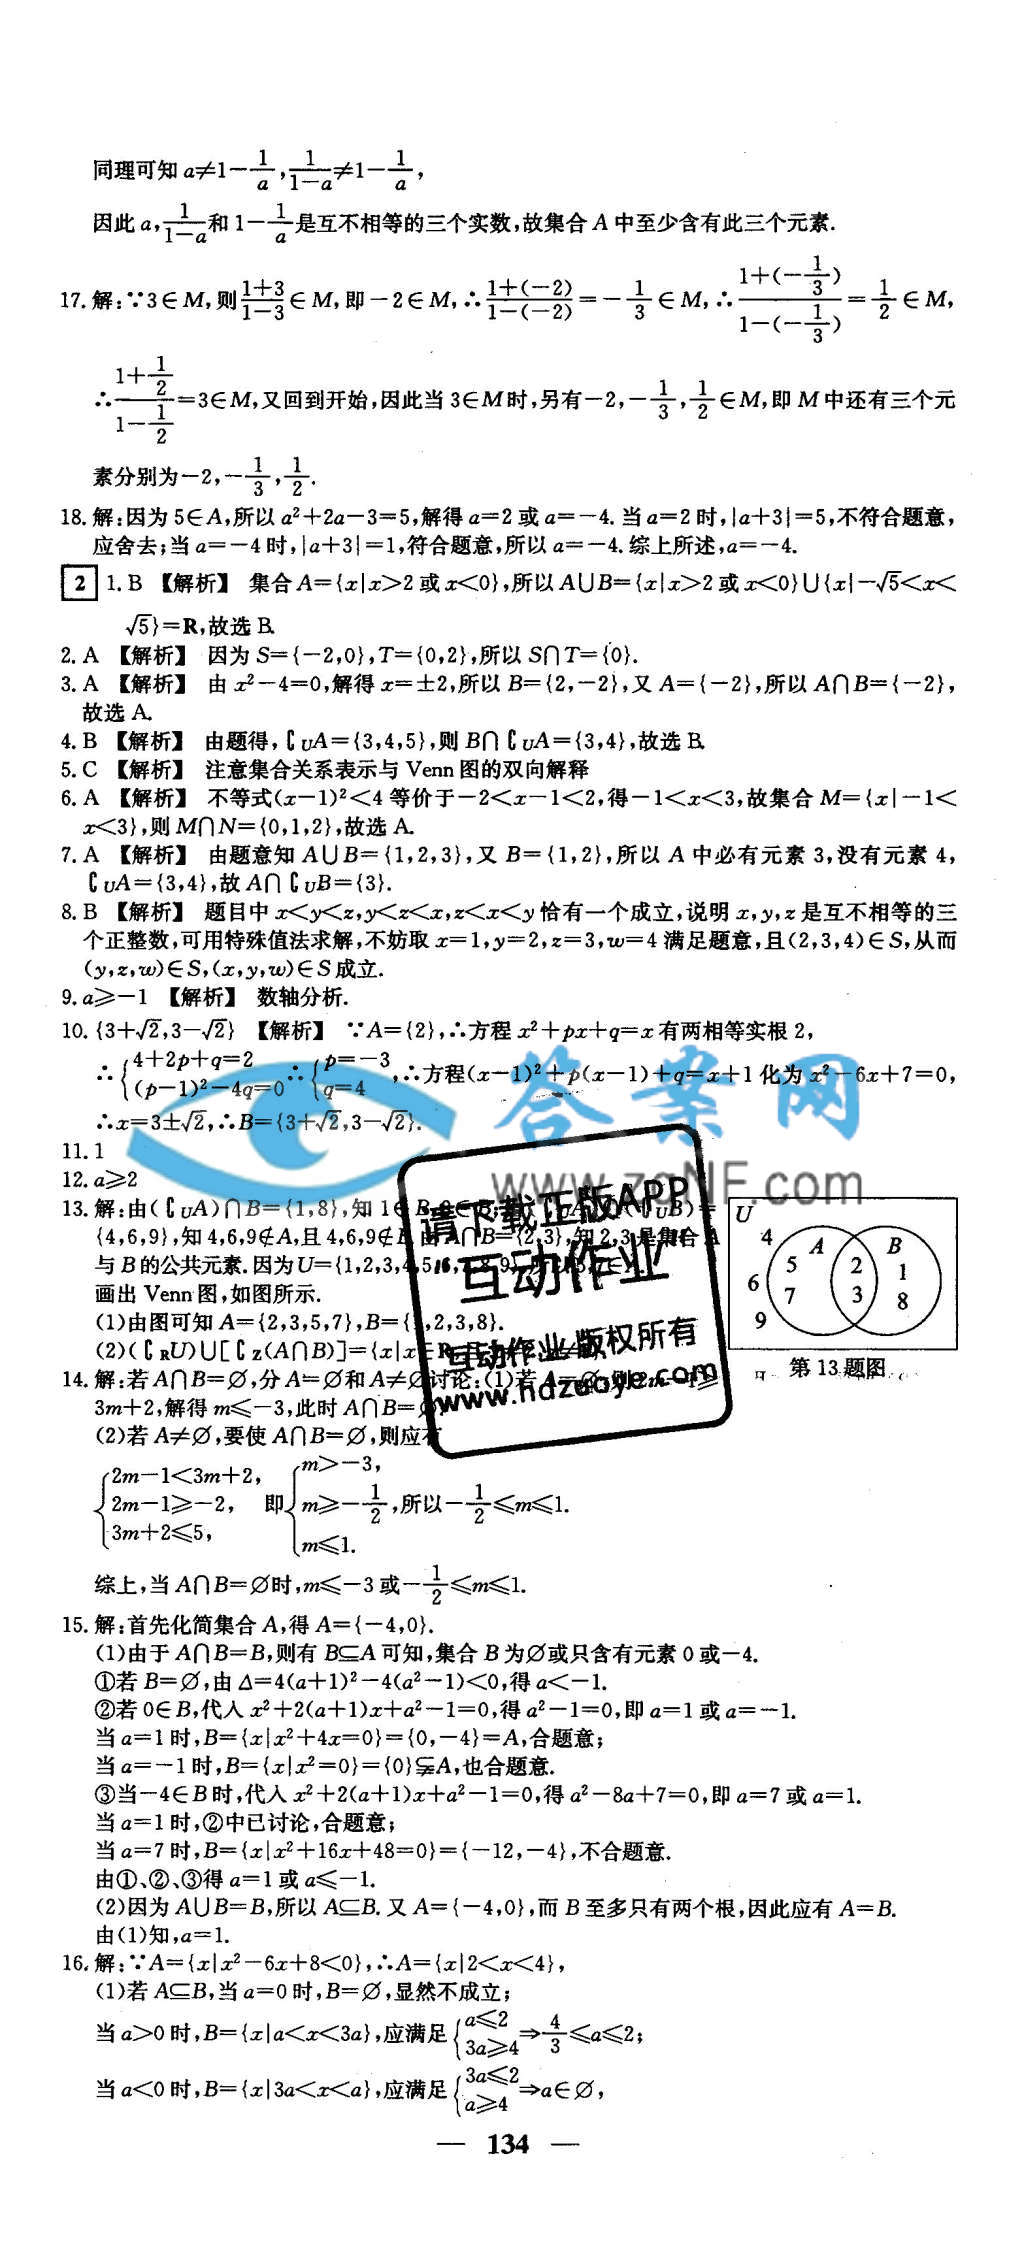 同理可知 a≠1-1/a, 1/(1-a)≠1-1/a,
因此 a, 1/(1-a) 和 1-1/a 是互不相等的三个实数,故集合 A 中至少含有此三个元素.
17. 解:∵3∈M,则 (1+3)/(1-3)∈M,即 -2∈M,∴(1+(-2))/(1-(-2))=-1/3∈M,∴(1+(-1/3))/(1-(-1/3))=1/2∈M,
∴(1+1/2)/(1-1/2)=3∈M,又回到开始,因此当 3∈M时,另有-2,-1/3,1/2∈M,即 M 中还有三个元
素分别为-2,-1/3,1/2.
18. 解:因为 5∈A,所以 a²+2a-3=5,解得 a=2 或 a=-4. 当 a=2 时,|a+3|=5,不符合题意,
应舍去;当 a=-4 时,|a+3|=1,符合题意,所以 a=-4. 综上所述,a=-4.
2 1. B 【解析】 集合 A={x|x>2 或 x<0},所以 A∪B={x|x>2 或 x<0}∪{x|-√5<x<
√5}=R,故选 B.
2. A 【解析】 因为 S={-2,0},T={0,2},所以 S∩T={0}.
3. A 【解析】 由 x²-4=0,解得 x=±2,所以 B={2,-2},又 A={-2},所以 A∩B={-2},
故选 A.
4. B 【解析】 由题得,∁UA={3,4,5},则 B∩∁UA={3,4},故选 B.
5. C 【解析】 注意集合关系表示与 Venn 图的双向解释
6. A 【解析】 不等式(x-1)²<4 等价于-2<x-1<2,得-1<x<3,故集合 M={x|-1<
x<3},则 M∩N={0,1,2},故选 A.
7. A 【解析】 由题意知 A∪B={1,2,3},又 B={1,2},所以 A 中必有元素 3,没有元素 4,
∁UA={3,4},故 A∩∁UB={3}.
8. B 【解析】 题目中 x<y<z,y<z<x,z<x<y 恰有一个成立,说明 x,y,z 是互不相等的三
个正整数,可用特殊值法求解,不妨取 x=1,y=2,z=3,w=4 满足题意,且(2,3,4)∈S,从而
(y,z,w)∈S,(x,y,w)∈S 成立.
9. a≥-1 【解析】 数轴分析.
10. {3+√2,3-√2} 【解析】 ∵A={2},∴方程 x²+px+q=x 有两相等实根 2,
∴{4+2p+q=2 (p-1)²-4q=0 ∴{p=-3 q=4,∴方程(x-1)²+p(x-1)+q=x+1 化为 x²-6x+7=0,
∴x=3±√2,∴B={3+√2,3-√2}.
答案网
www.zqNF.com
11. 1
12. a≥2
13. 解:由(∁UA)∩B={1,8},知 1∈B
{4,6,9},知 4,6,9∉A,且 4,6,9∉B,由 A∩B={2,3},知 2,3 是集合 A
与 B 的公共元素.因为 U={1,2,3,4,5,6,7,8,9}
画出 Venn 图,如图所示.
(1)由图可知 A={2,3,5,7},B={1,2,3,8}.
(2)(∁RU)∪[∁Z(A∩B)]={x|x∈R
U
4 6 9
A
5 7
2 3
B
1 8
第 13 题图
请下载正版APP
互动作业
互动作业 版权所有
www.hdzuoye.com
14. 解:若 A∩B=∅,分 A=∅和 A≠∅讨论:(1)若 A=∅,则 2m-1≥
3m+2,解得 m≤-3,此时 A∩B=∅
(2)若 A≠∅,要使 A∩B=∅,则应有
{2m-1<3m+2, 2m-1≥-2, 3m+2≤5, 即{m>-3, m≥-1/2, m≤1. 所以-1/2≤m≤1.
综上,当 A∩B=∅时,m≤-3 或-1/2≤m≤1.
15. 解:首先化简集合 A,得 A={-4,0}.
(1)由于 A∩B=B,则有 B⊆A 可知,集合 B 为∅或只含有元素 0 或-4.
①若 B=∅,由 Δ=4(a+1)²-4(a²-1)<0,得 a<-1.
②若 0∈B,代入 x²+2(a+1)x+a²-1=0,得 a²-1=0,即 a=1 或 a=-1.
当 a=1 时,B={x|x²+4x=0}={0,-4}=A,合题意;
当 a=-1 时,B={x|x²=0}={0}⫋A,也合题意.
③当-4∈B 时,代入 x²+2(a+1)x+a²-1=0,得 a²-8a+7=0,即 a=7 或 a=1.
当 a=1 时,②中已讨论,合题意;
当 a=7 时,B={x|x²+16x+48=0}={-12,-4},不合题意.
由①、②、③得 a=1 或 a≤-1.
(2)因为 A∪B=B,所以 A⊆B. 又 A={-4,0},而 B 至多只有两个根,因此应有 A=B.
由(1)知,a=1.
16. 解:∵A={x|x²-6x+8<0},∴A={x|2<x<4},
(1)若 A⊆B,当 a=0 时,B=∅,显然不成立;
当 a>0 时,B={x|a<x<3a},应满足{a≤2 3a≥4⇒4/3≤a≤2;
当 a<0 时,B={x|3a<x<a},应满足{3a≤2 a≥4⇒a∈∅,
— 134 —